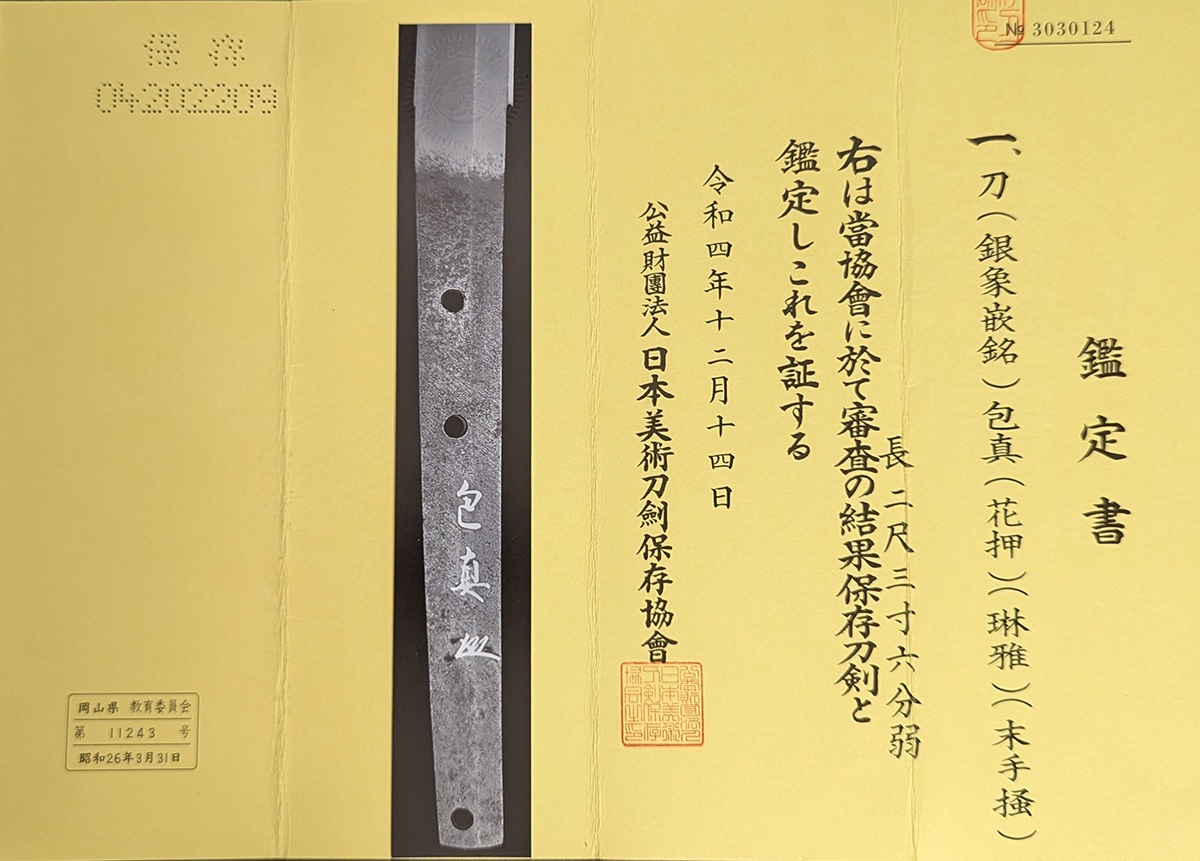 № 3030124
鑑定書
一、刀(銀象嵌銘)包真(花押)(琳雅)(末手掻)
長二尺三寸六分弱
右は當協會に於て審査の結果保存刀剣と
鑑定しこれを証する
令和四年十二月十四日
公益財團法人日本美術刀劍保存協會
包真
保存
04202209
岡山県 教育委員会
第 11243 号
昭和26年3月31日